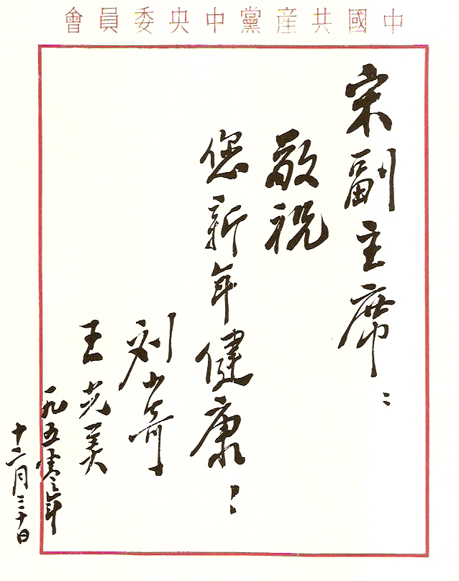 中國共產黨中央委員會
宋副主席：
敬祝
您新年健康！
刘少奇
王光美
一九五零年
十二月三十日